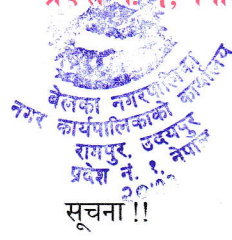 बेलका नगरपालिका
नगर कार्यपालिकाको कार्यालय
रामपुर, उदयपुर
प्रदेश नं. १, नेपाल
सूचना !!